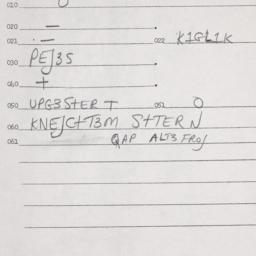 010
020 =
021 - = 022 K1GL1K
030 PEJ3S
040 +
050 UPG3STER T 051 O
060 KNEJC+T3M S+TERN
061 QAP ALT3 FROJ